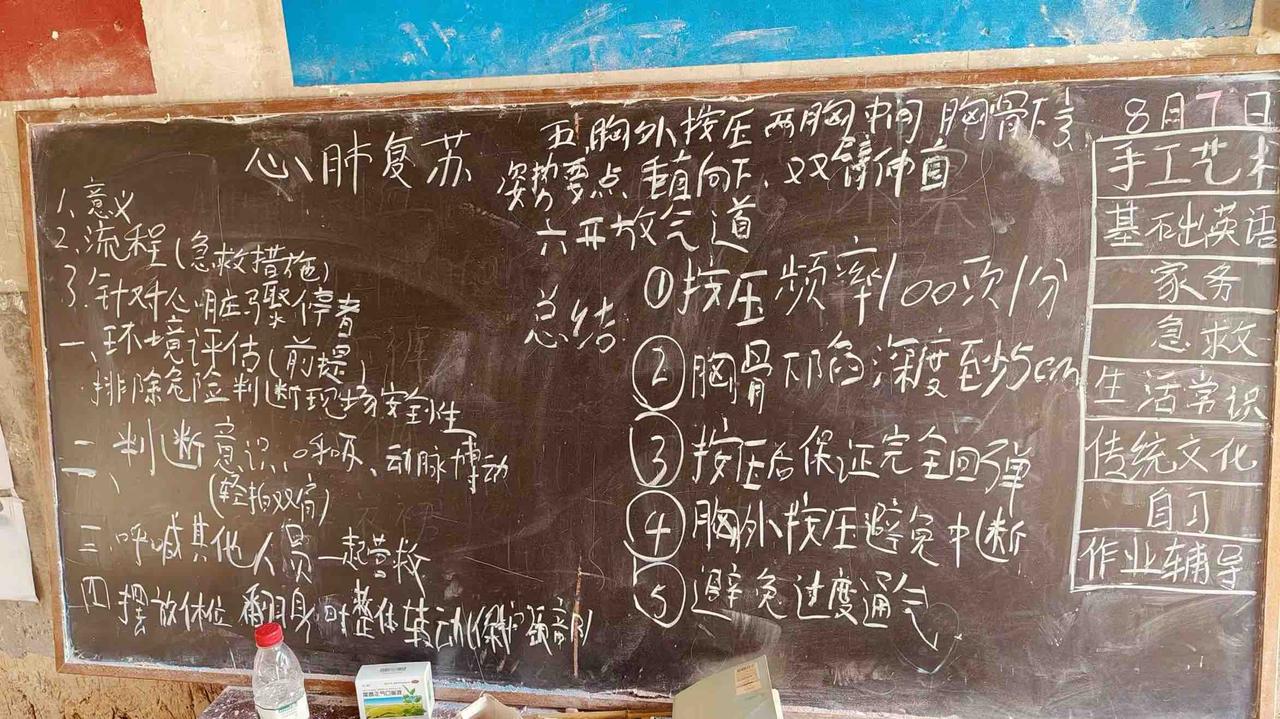 心肺复苏
1、意义
2、流程(急救措施)
3、针对心脏骤停者
一、环境评估(前提)
排除危险判断现场安全性
二、判断意识、呼吸、动脉搏动
(轻拍双肩)
三、呼喊其他人员一起营救
四 摆放体位 翻身时整体转动(保护颈部)
五、胸外按压 两胸中间 胸骨下
姿势要点、垂直向下、双臂伸直
六 开放气道
总结:
①按压频率100次/分
②胸骨下陷深度至少5cm
③按压后保证完全回弹
④胸外按压避免中断
⑤避免过度通气
8月7日
手工艺术
基础英语
家务
急救
生活常识
传统文化
自习
作业辅导